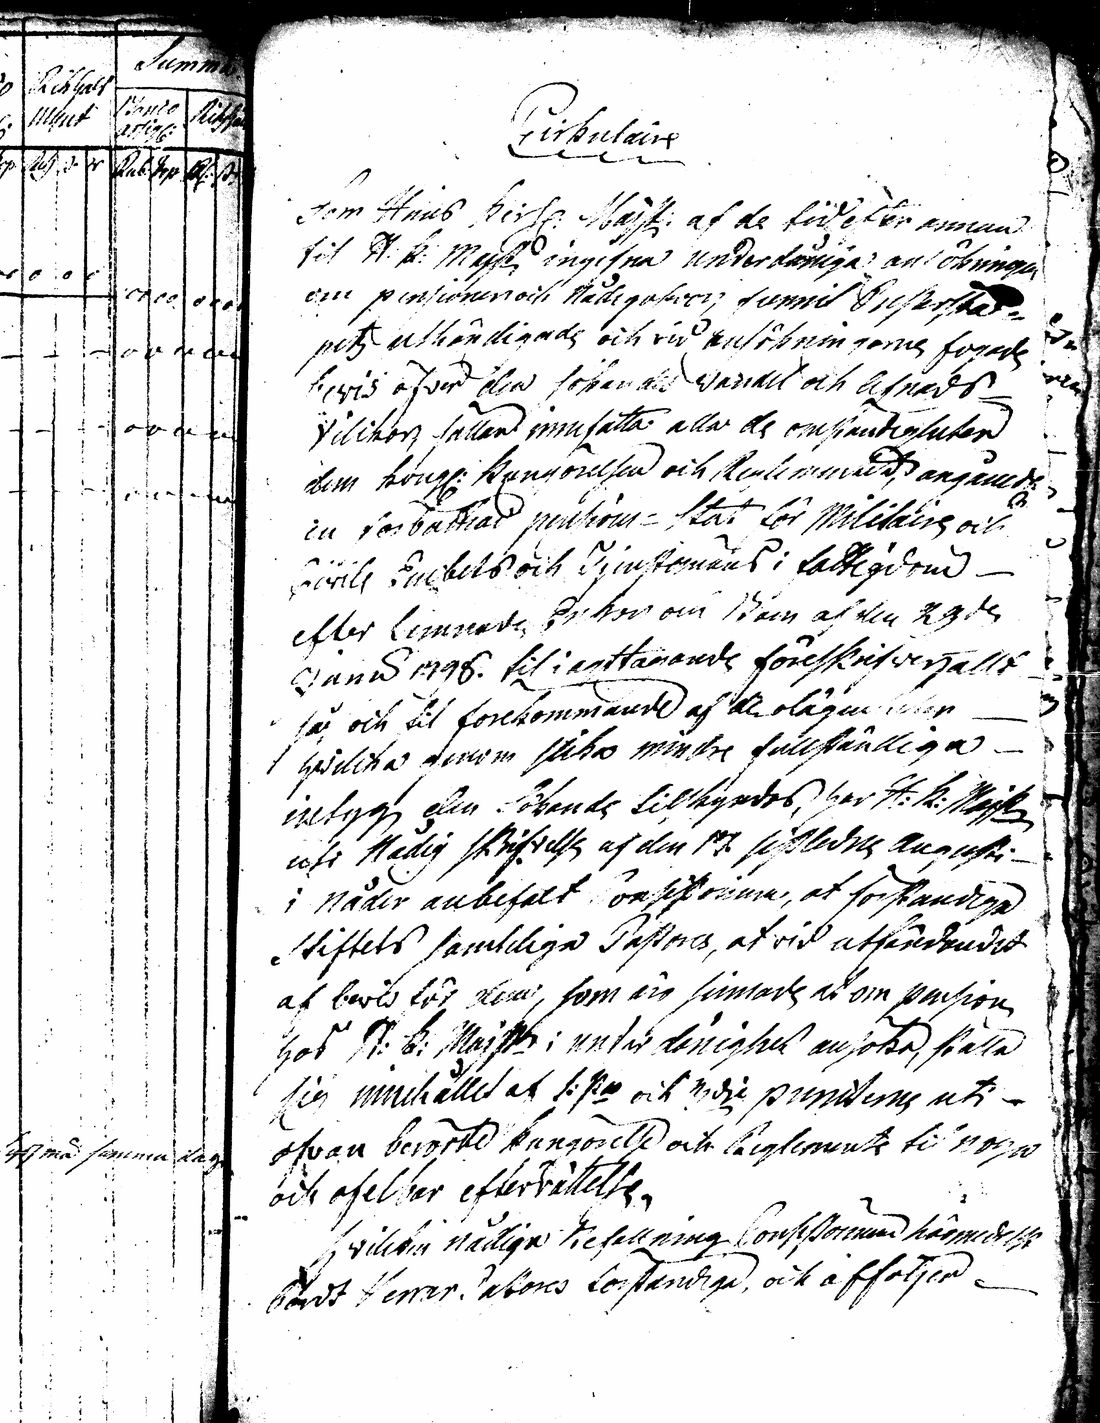 Summa
Riksgäld
Mynt
Banco
Cirkulaire
Som Hans Kongl: Majst: af de tid efter annan
til K: K: Majst ingifna underdåniga ansökningar
om pensioner och Nådegåfvor, funnit Presterska-
pets uthändigade och vid ansökningarne fogade
bevis öfver den sökandes vandel och lefnads-
vilkor, sällan innefatta alla de omständigheter
dem kongl: Kungörelsen och Reglementet, angående
en förbättrad pensions-Stat för Militaire och
Civile Embets och Tjenstemäns i fattigdom
efter lemnade Enkor och Barn af den 29de
Junii 1798. til iagttagande föreskrifver; altså
och til förekommande af de olägenheter
hvilka genom slika mindre fullständiga
intyg den Sökande tilskyndas, har K: K: Majst
uti Nådig skrifvelse af den 17 sistledne Augusti
i Nåder anbefalt Consistorium, at förständiga
Stiftets samtelige Pastores, at vid utfärdandet
af bevis för dem, som äro sinnade at om pension
hos K: K: Majst i underdånighet ansöka, ställa
sig innehållet af 1:sta och 3dje puncterne uti
ofvan berörde Kungörelse och Reglemente til noga
och ofelbar efterrättelse.
Hvilken nådiga befallning Consistorium härmedelst
bordt Herrar Pastores förständiga, och åtföljer
må samma dag